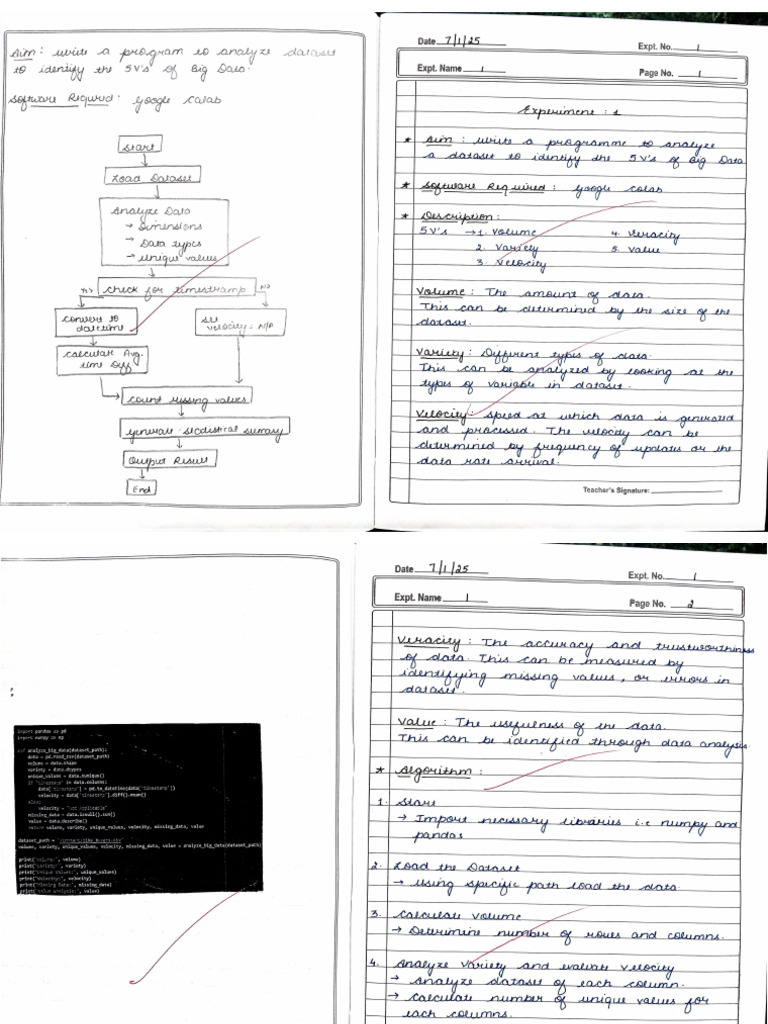 Aim : write a program to analyze dataset
to identify the 5V's of Big Data.
Software Required : Google Colab
Start
Load Dataset
Analyze Data
→ Dimensions
→ Data types
→ unique values
check for timestamp
Yes
No
convert to
datetime
set
velocity = N/A
calculate Avg.
time Diff
count missing values
generate statistical sumary
Output Result
End
Date 7/1/25
Expt. No. 1
Expt. Name 1
Page No. 1
Experiment : 1
* Aim : write a programme to analyze
a dataset to identify the 5V's of Big Data
* Software Required : google colab
* Description :
5V's → 1. Volume 4. Veracity
2. Variety 5. Value
3. Velocity
Volume : The amount of data.
This can be determined by the size of the
dataset.
Variety : Different types of data.
This can be analyzed by looking at the
types of variable in dataset.
Velocity : speed at which data is generated
and processed. The velocity can be
determined by frequency of updates or the
data rate arrival.
Teacher's Signature:
:
import pandas as pd
import numpy as np
def analyze_big_data(dataset_path):
data = pd.read_csv(dataset_path)
volume = data.shape
variety = data.dtypes
unique_values = data.nunique()
if 'timestamp' in data.columns:
data['timestamp'] = pd.to_datetime(data['timestamp'])
velocity = data['timestamp'].diff().mean()
else:
velocity = "Not Applicable"
missing_data = data.isnull().sum()
value = data.describe()
return volume, variety, unique_values, velocity, missing_data, value
volume, variety, unique_values, velocity, missing_data, value = analyze_big_data(dataset_path)
print("Volume:", volume)
print("Variety:", variety)
print("Unique Values:", unique_values)
print("Velocity:", velocity)
print("Missing Data:", missing_data)
print("Value Analysis:", value)
Date 7/1/25
Expt. No. 1
Expt. Name 1
Page No. 2
Veracity : The accuracy and trustworthiness
of data. This can be measured by
identifying missing values, or errors in
dataset.
Value : The usefulness of the data.
This can be identified through data analysis.
* Algorithm :
1. Start
→ Import necessary libraries i.e numpy and
pandas
2. Load the Dataset
→ Using specific path load the data.
3. Calculate Volume
→ Determine number of rows and columns.
4. Analyze Variety and evaluate Velocity
→ Analyze dataset of each column.
→ Calculate number of unique values for
each columns.